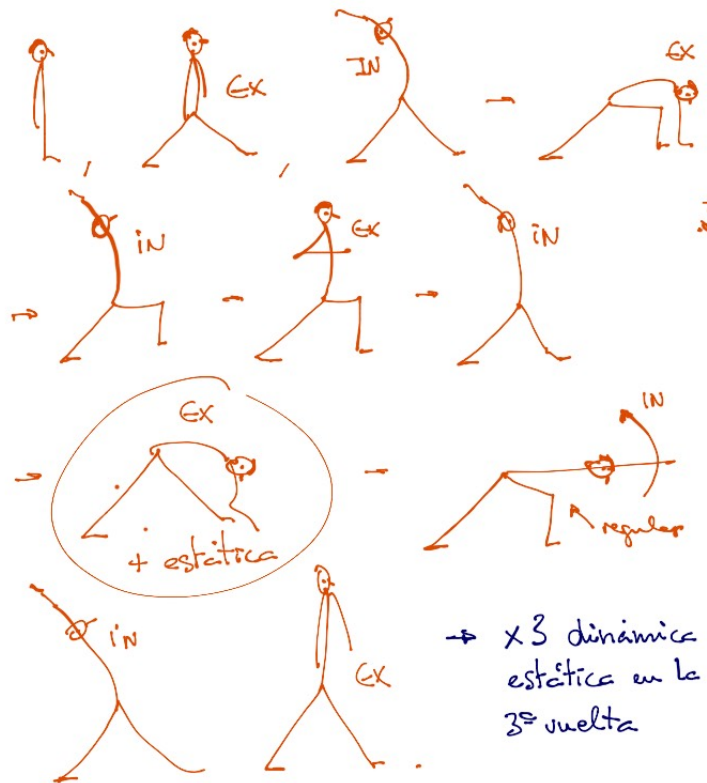 EX
IN
EX
iN
EX
iN
EX
+ estática
IN
regular
iN
EX
→ x3 dinámica
estática en la
3ª vuelta